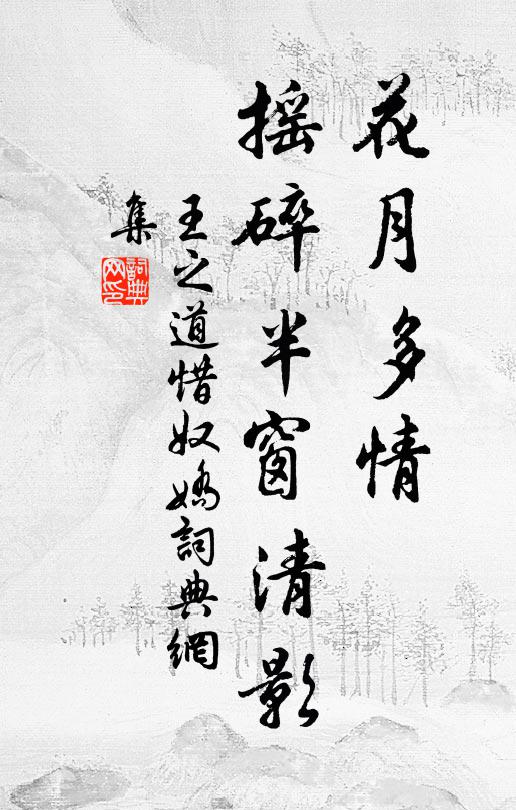 花月多情
搖碎半窗清影
王之道惜奴嬌詞典網
集
詞典
网印